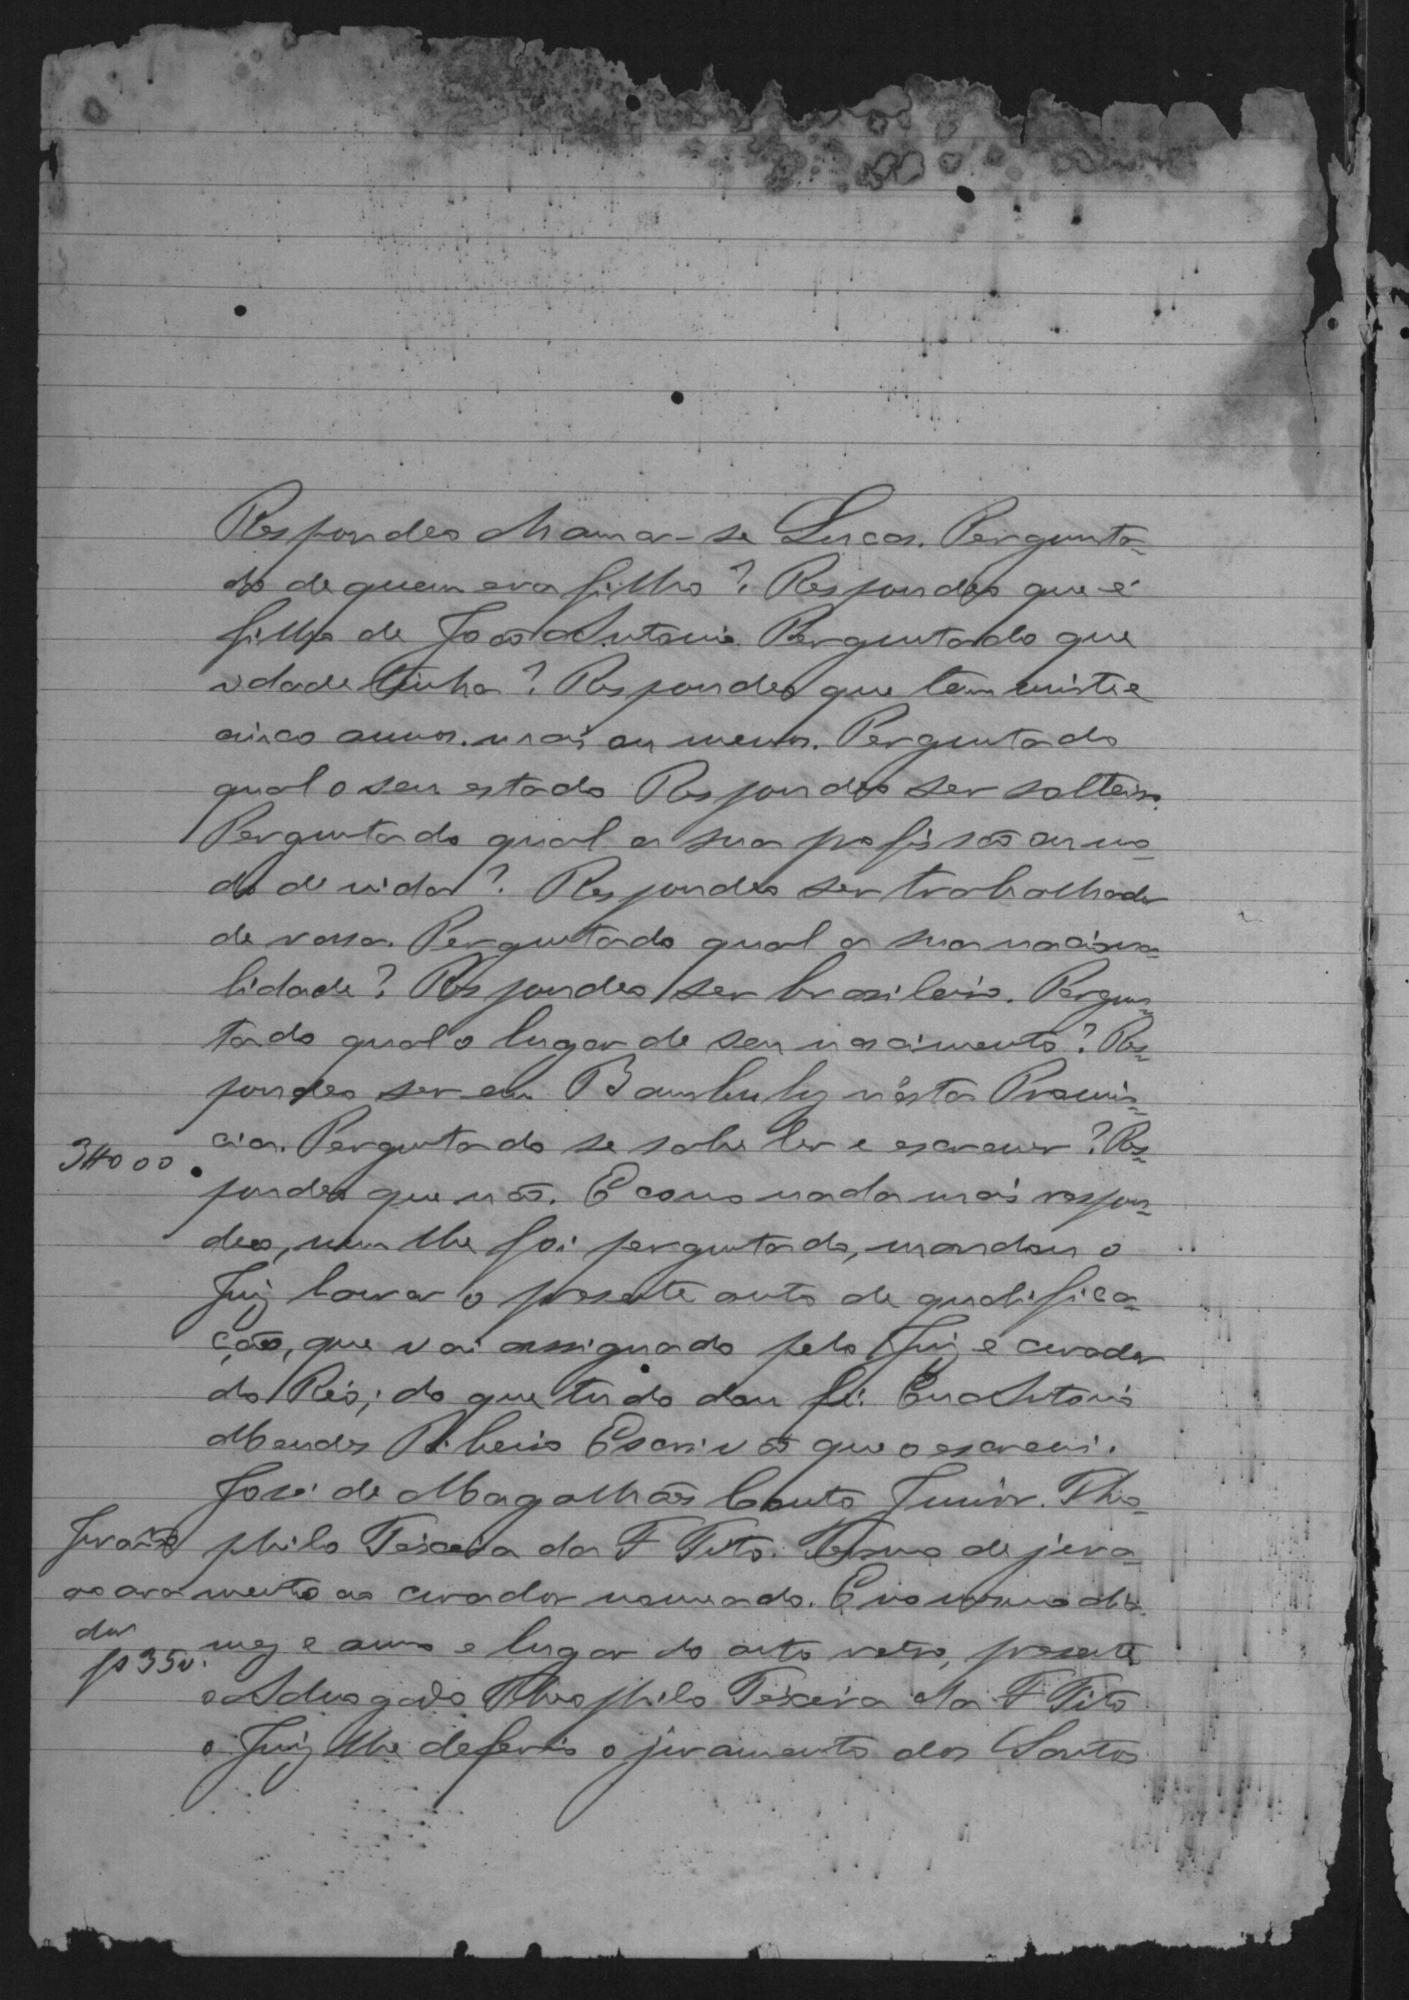 Respondeo chamar-se Lucas. Pergunta-
do de quem era filho? Respondeo que é
filho de João Antonio. Perguntado que
idade tinha? Respondeo que tem vinte e
cinco annos. mais ou menos. Perguntado
qual o seu estado Respondeo ser solteiro.
Perguntado qual a sua profissão ou mo-
do de vida? Respondeo ser trabalhador
de rossa. Perguntado qual a sua naciona-
lidade? Respondeo ser brasileiro. Pergun-
tado qual o lugar de seu nascimento? Res-
pondeo ser em Bambuhy nésta Provin-
cia. Perguntado se sabe ler e escrever? Res-
3#000
pondeo que não. E como nada mais respon-
deo, nem lhe foi perguntado, mandou o
Juiz lavrar o presente auto de qualifica-
ção, que vai assignado pelo Juiz e curador
do Réo; do que tudo dou fé. Eu Antonio
Mendes Ribeiro Escrivão que o escrevi.
José de Magalhães Couto Junior. Theo-
philo Teixeira da F Tito. Termo de jura-
mento ao curador nomeado. E no mesmo dia
mez e anno e lugar do auto retro, presente
o Advogado Theophilo Teixeira da F Tito
o Juiz lhe deferio o juramento dos Santos
ao cura
dor